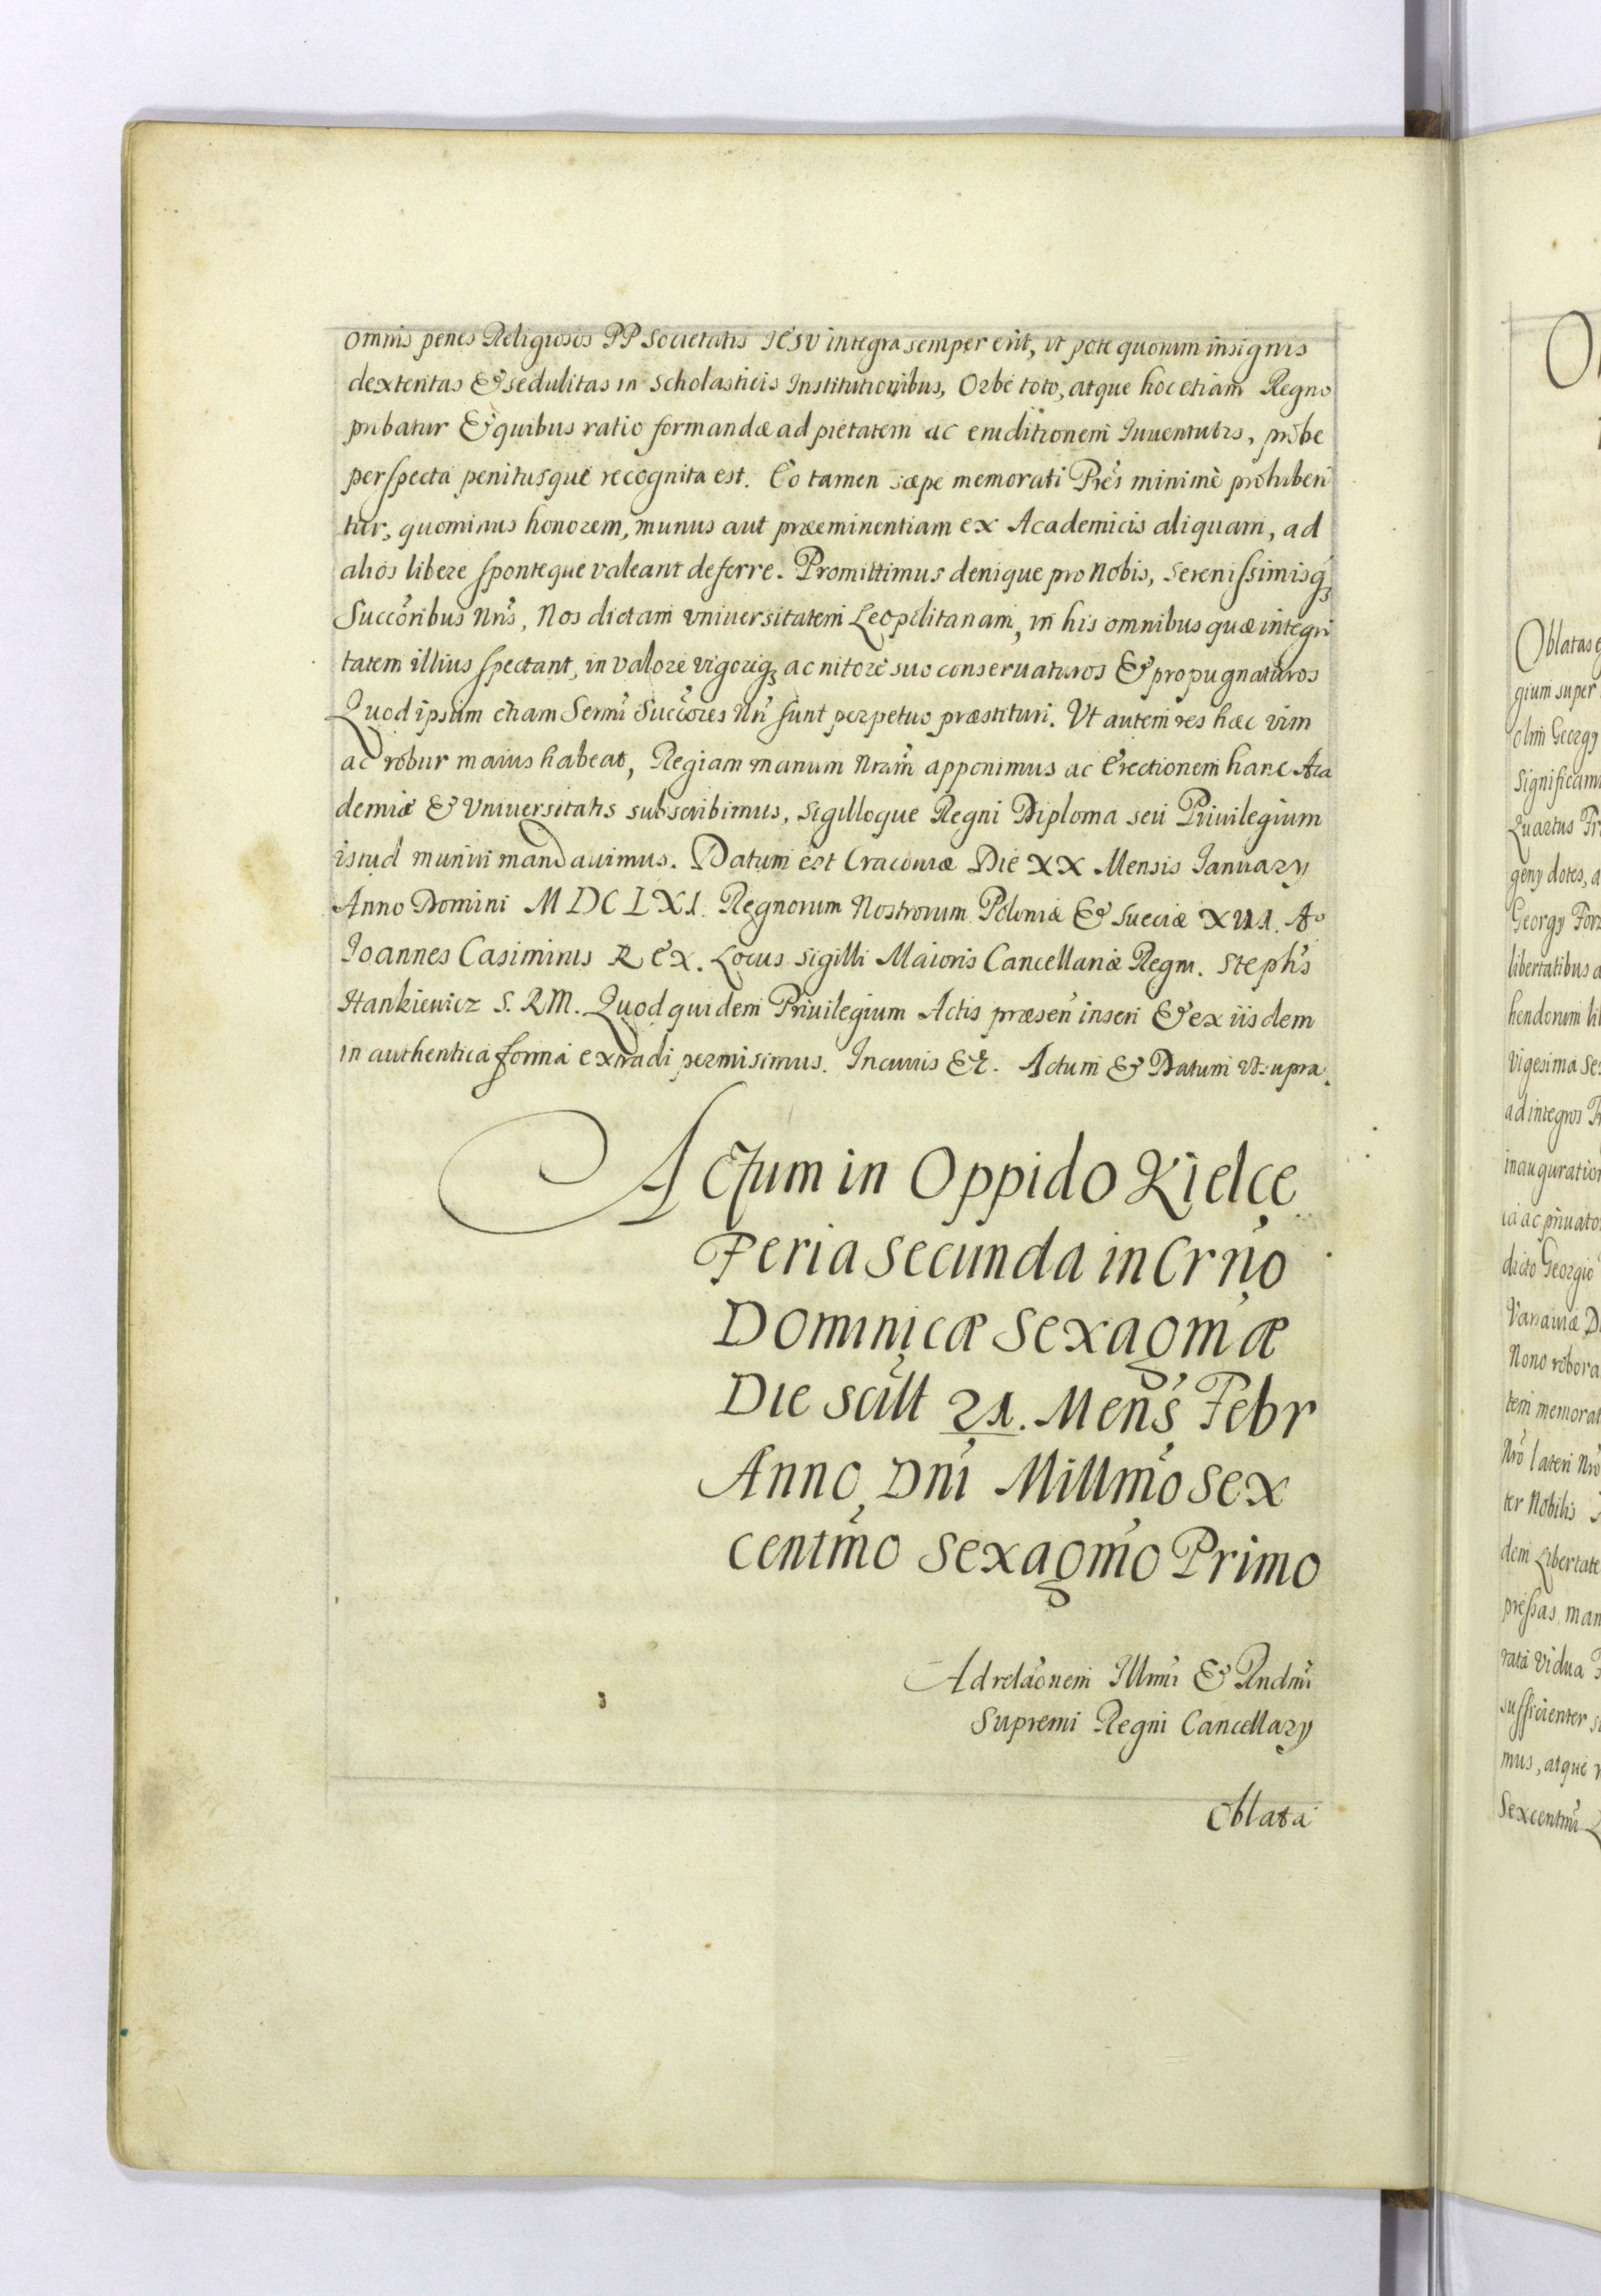 omnis penes Religiosos PP Societatis IESV integra semper erit, ut pote quorum insignis
dexteritas & sedulitas in scholasticis Institutionibus, Orbe toto, atque hoc etiam Regno
probatur & quibus ratio formandæ ad pietatem ac eruditionem Iuuentutis, probe
perspecta penitusque recognita est. Eo tamen sæpe memorati Pr̃es minimè prohiben
tur, quominus honorem, munus aut præeminentiam ex Academicis aliquam, ad
alios libere sponteque valeant deferre. Promittimus denique pro Nobis, Serenissimisq₃
Succõribus Nr̃is, Nos dictam Vniuersitatem Leopolitanam, in his omnibus quæ integri
tatem illius spectant, in valore vigoriq₃ ac nitore suo conseruaturos & propugnaturos
Quod ipsum etiam Sermĩ Succõres Nr̃i sunt perpetuo præstituri. Vt autem res hæc vim
ac robur maius habeat, Regiam manum Nram̃ apponimus ac Erectionem hanc Aca
demiæ & Vniuersitatis subscribimus, sigilloque Regni Diploma seu Priuilegium
istud muniri mandauimus. Datum est Cracouiæ Die XX Mensis Ianuary
Anno Domini MDCLXI. Regnorum Nostrorum Poloniæ & Sueciæ XIII. Aº
Ioannes Casimirus REX. Locus sigilli Maioris Cancellariæ Regni. Steph̃s
Hankiewicz S. RM. Quod quidem Priuilegium Actis præsen̄ inseri & ex iisdem
in authentica forma extradi permisimus. In cuius &c. Actum & Datum vt supra.
Actum in Oppido Kielce
Feria Secunda in Crño
Dominicæ Sexagmæ
Die scilt 21. Mens̃ Febr
Anno Dnĩ Millmõ Sex
centmõ Sexagmõ Primo
Ad relaõnem Illmĩ & Rndmĩ
Supremi Regni Cancellary
Oblata
Oblatas
gium super
olim Georgy
significam
Quartus
geny dotes, a
Georgy
libertatibus a
hendorum
vigesima
ad integros
inauguration
dicto Georgio
Varsauiæ
Nono robora
tem memorat
Nrõ lateri
ter Nobilis
dem Libertate
pressas, man
rata Vidua
sufficienter
mus, atque
Sexcentmĩ